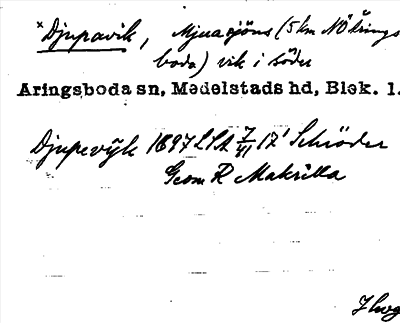 × Djupavik, Mjuasjöns (5 km NÖ Årings
boda) vik i söder
Aringsboda sn, Medelstads hd, Blek. l.
Djupevÿk 1697 LSA 7/41 12' Schröder
Geom R Makrilla